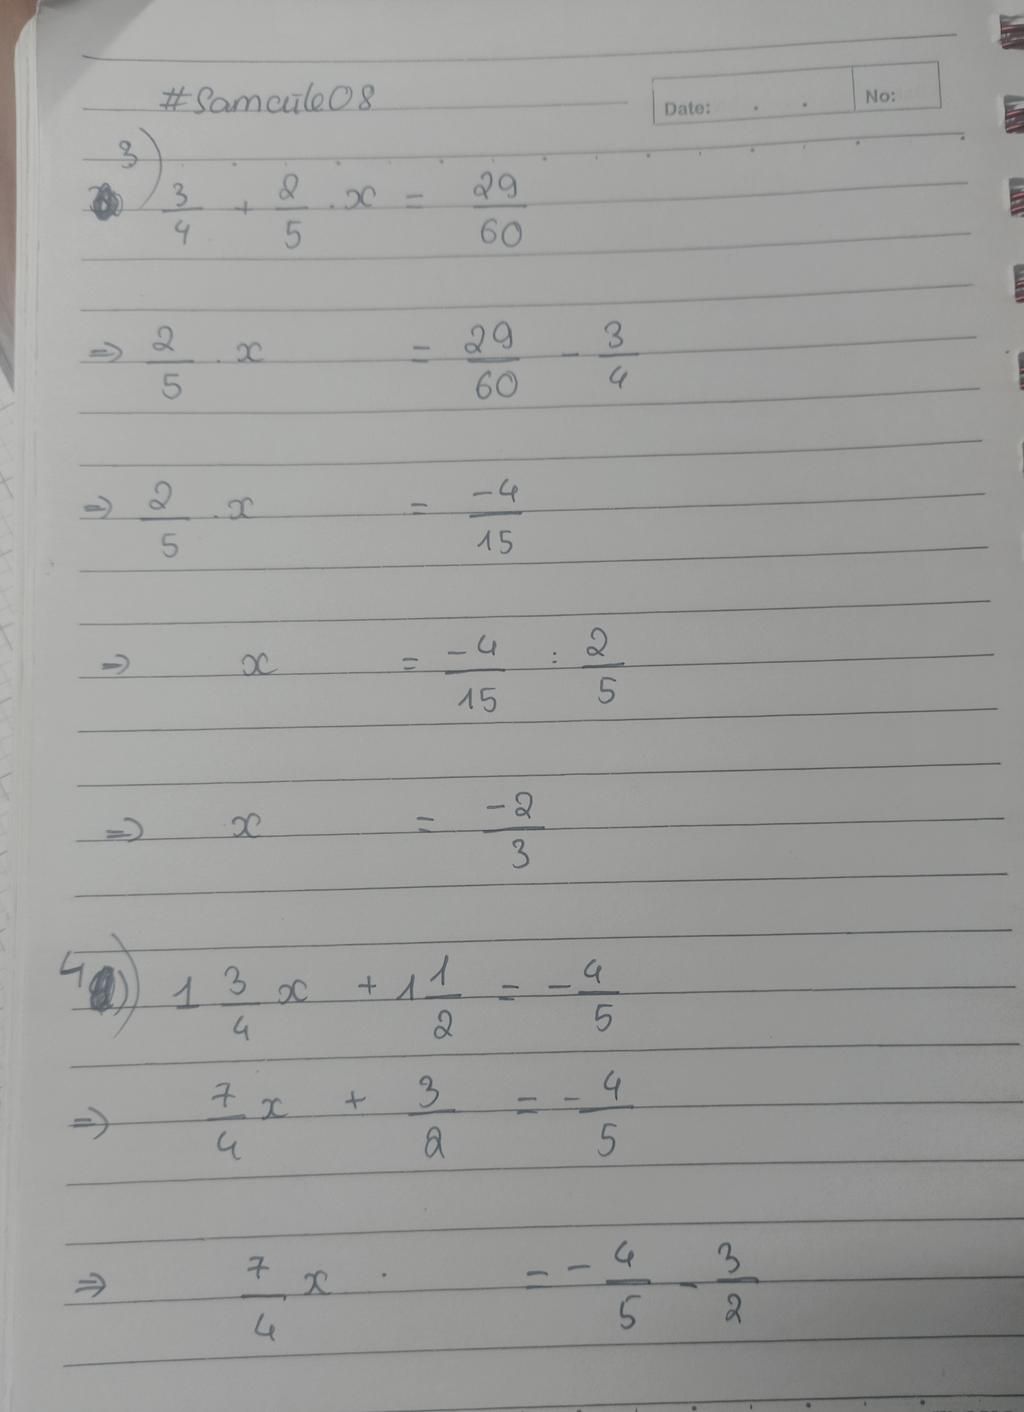 #Samcute08
Date: . . No:
3) 3/4 + 2/5 . x = 29/60
=> 2/5 . x = 29/60 - 3/4
=> 2/5 . x = -4/15
=> x = -4/15 : 2/5
=> x = -2/3
4) 1 3/4 x + 1 1/2 = - 4/5
=> 7/4 x + 3/2 = - 4/5
=> 7/4 x . = - 4/5 - 3/2